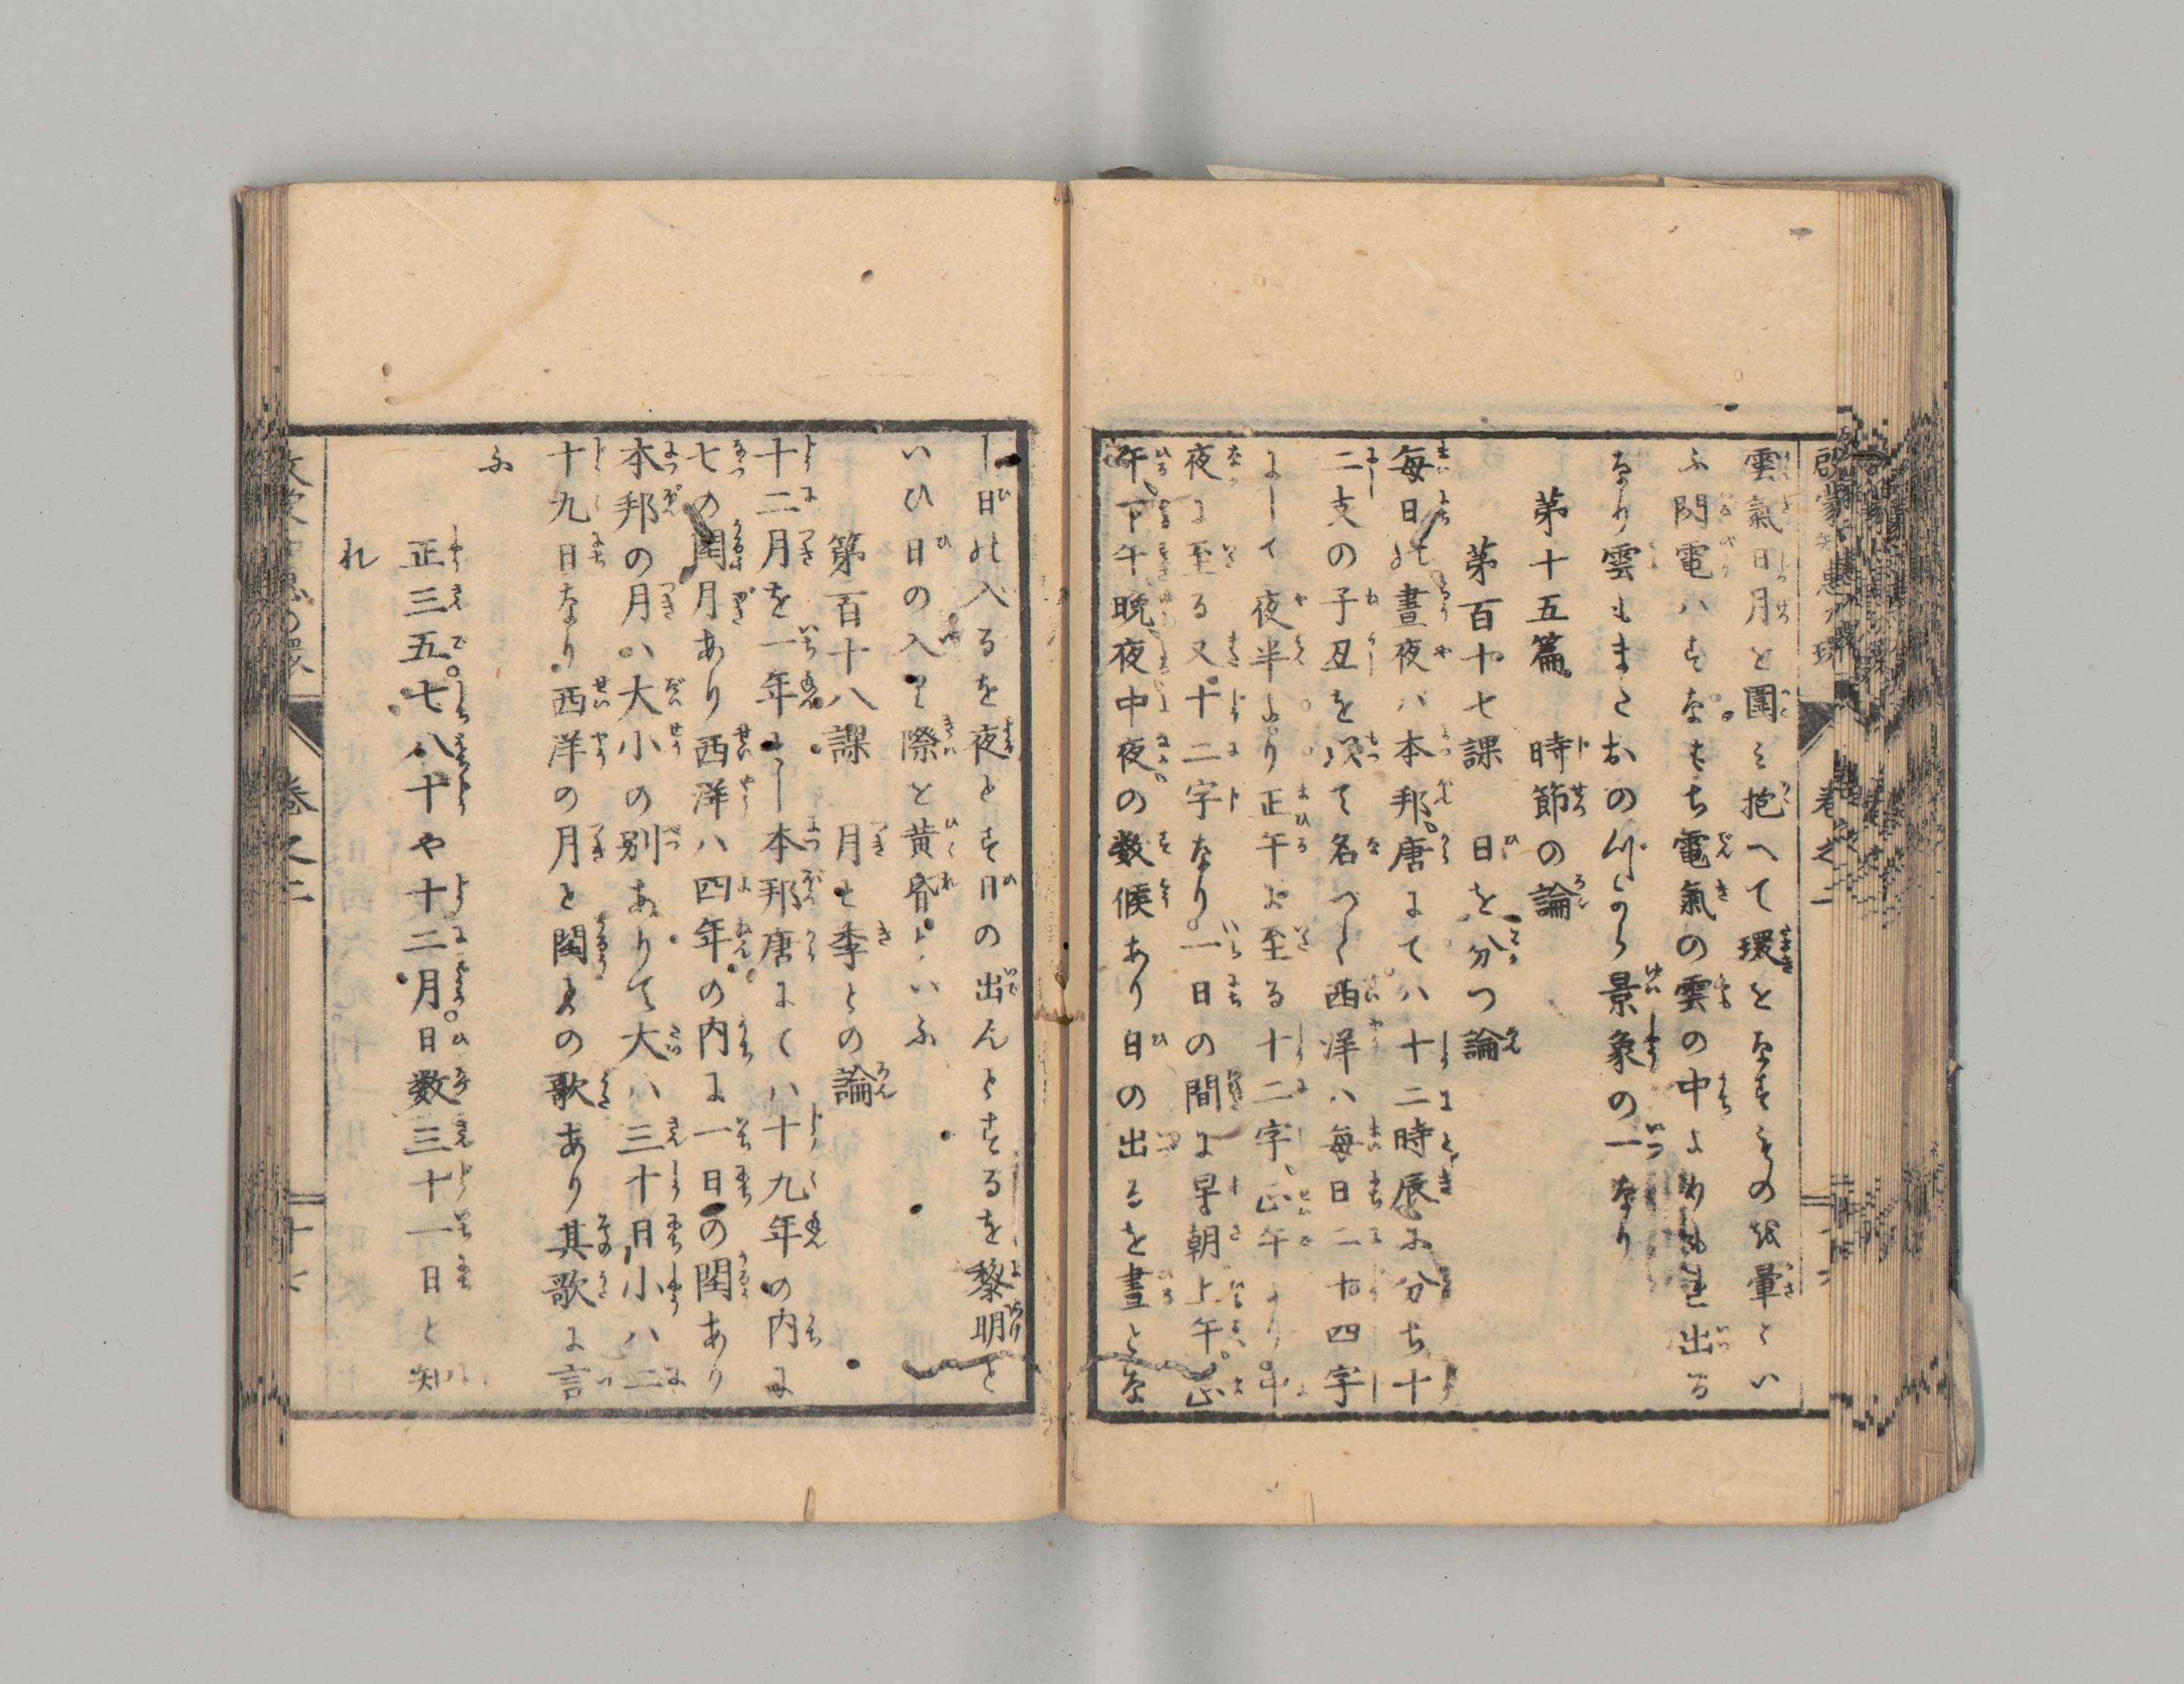 啓蒙智惠乃環 卷之二
雲氣日月を圍み抱へて環をなすものは暈とい
ふ閃電ハすなはち電氣の雲の中より出る
なり雲もまたおのづから景象の一なり
第十五篇 時節の論
第百十七課 日を分つ論
毎日の晝夜ハ本邦唐にてハ十二時辰に分ち十
二支の子丑を以て名づく西洋ハ毎日二十四字
にして夜半より正午に至る十二字正午より中
夜に至る又十二字なり一日の間に早朝上午正
午下午晩夜中夜の数候あり日の出るを晝とな
し日の入るを夜とす日の出んとするを黎明と
いひ日の入る際を黄昏といふ
第百十八課 月と季との論
十二月を一年にし本邦唐にてハ十九年の内に
七の閏月あり西洋ハ四年の内に一日の閏あり
本邦の月ハ大小の別ありて大ハ三十日小ハ二
十九日なり西洋の月と閏との歌あり其歌に言
ふ
正三五七八十や十二月日数三十一日と知
れ
卷之二